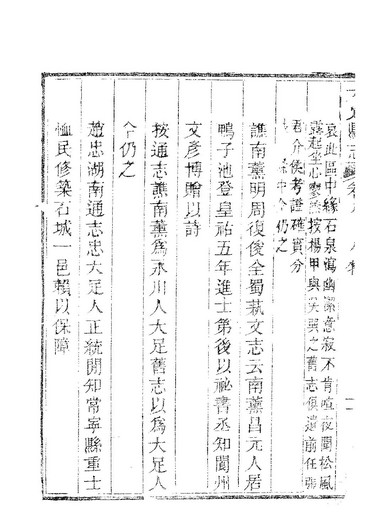 大足縣志卷八 人物
哀此區中緣石泉瀉幽潔意寂不肯喧夜闌松風
露起坐心寥
按楊甲與
舊志俱遺前任張
君介侯考證確實分
中今仍之
譙南薰明周復俊全蜀萟文志云南薰昌元人居
鴨子池登皇祐五年進士第後以祕書丞知閬州
文彥博贈以詩
按通志譙南薰為永川人大足舊志以為大足人
今仍之
趙忠湖南通志忠大足人正統閒知常寧縣重士
恤民修築石城一邑賴以保障